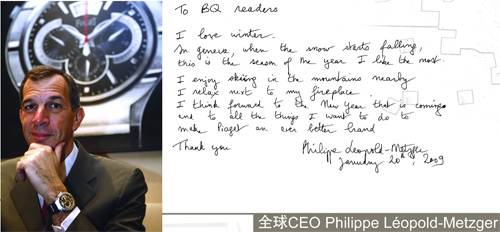 PIAGET
To BQ readers
I love winter.
In geneva, when the snow starts falling,
this is the season of the year I like the most.
I enjoy skiing in the mountains nearby
I relax next to my fireplace.
I think forward to the New Year that is coming
and to all the things I want to do to
make Piaget an ever better brand
Thank you
Philippe Leopold-Metzger
january 20th, 2009
全球CEO Philippe Léopold-Metzger